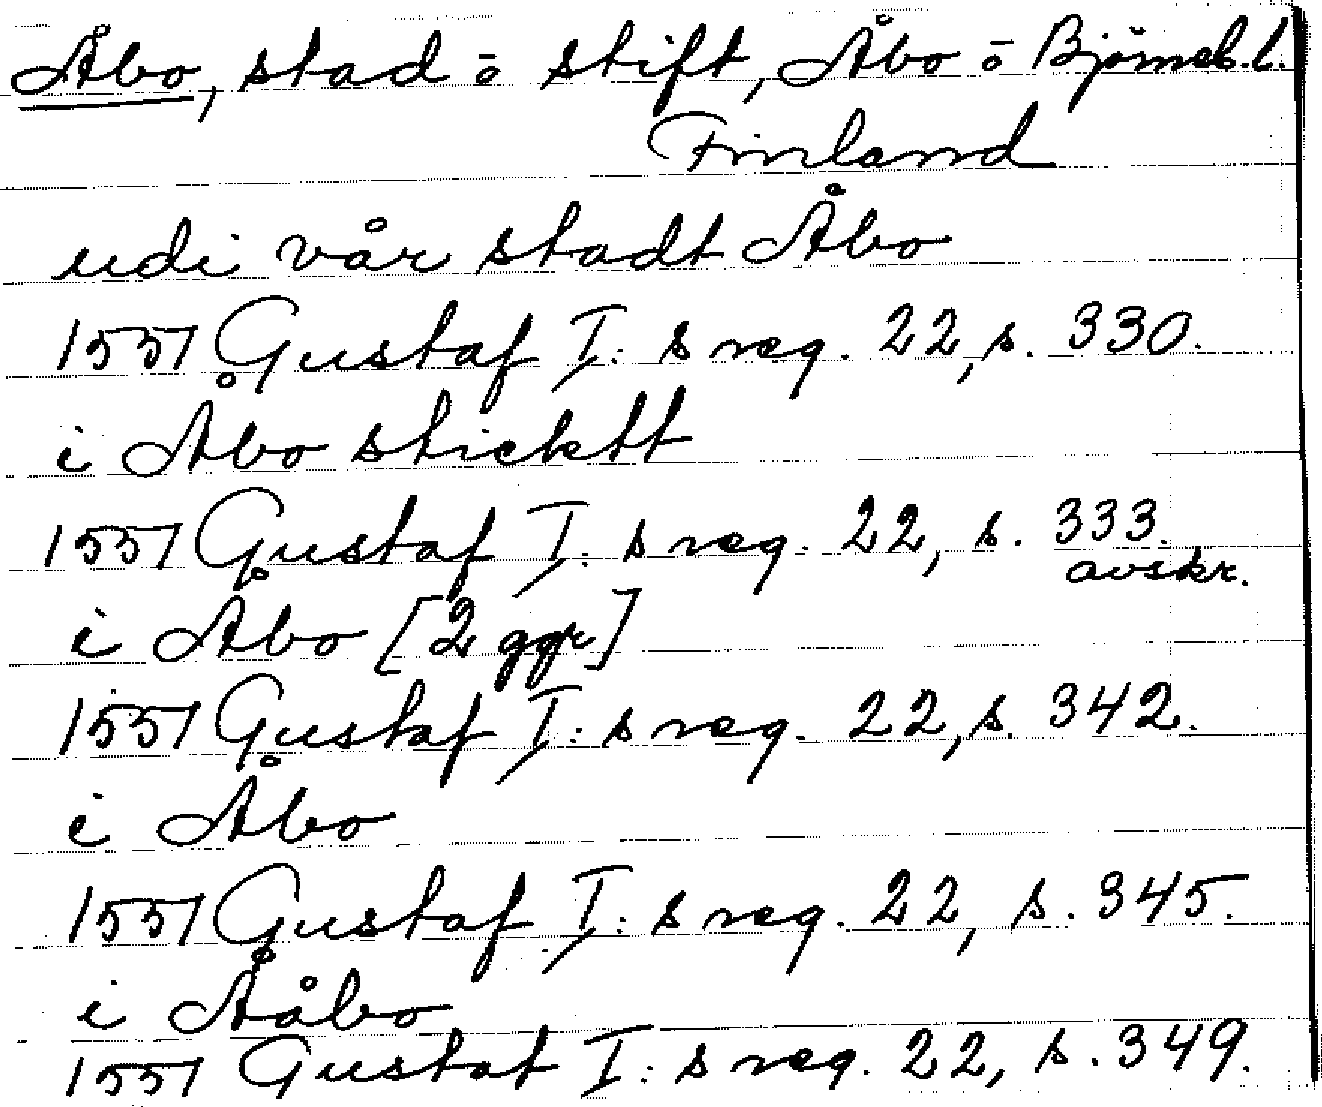 Åbo, stad o stift, Åbo o Björneb. l.
Finland
udi vår stadt Åbo
1551 Gustaf I: s reg. 22, s. 330.
i Åbo sticktt
1551 Gustaf I: s reg. 22, s. 333.
avskr.
i Åbo [2 ggr]
1551 Gustaf I: s reg. 22, s. 342.
i Åbo
1551 Gustaf I: s reg. 22, s. 345.
i Ååbo
1551 Gustaf I: s reg. 22, s. 349.